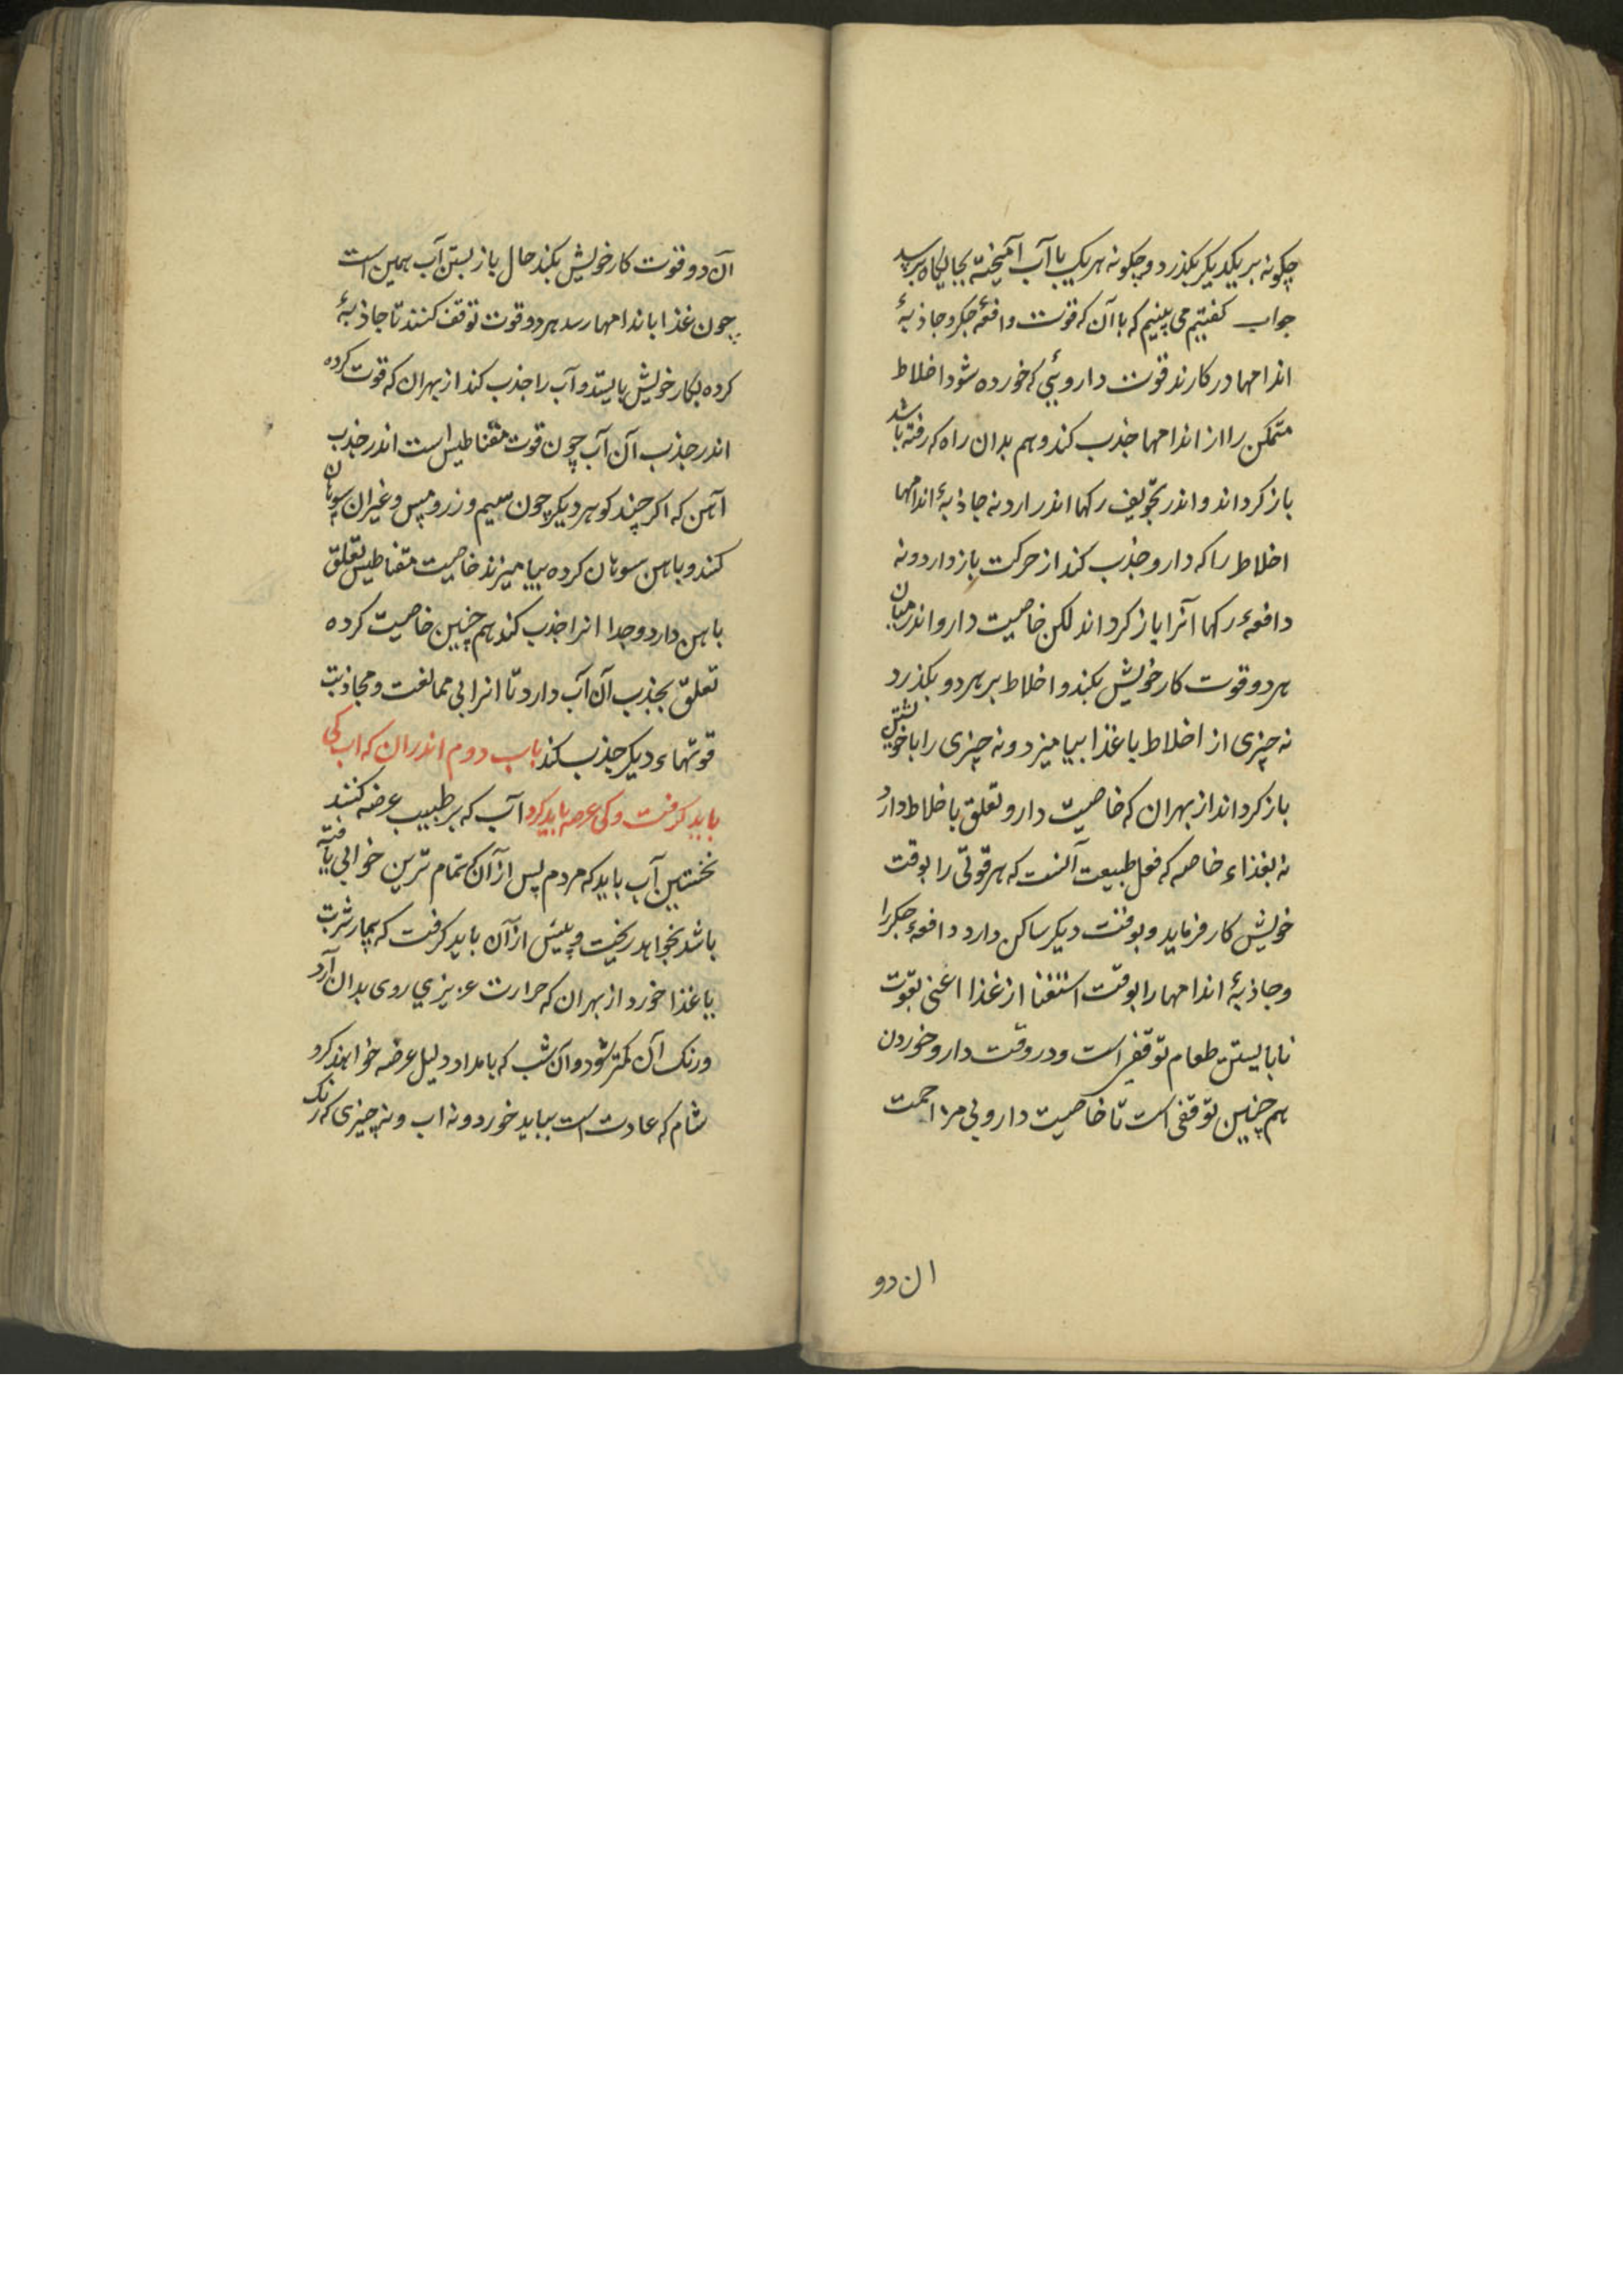 چکونه بر یکدیکر بکذرد و چکونه هر یک با آب آمیخته بجایکاه برسد
جواب کفتیم می بینیم که با آن که قوت دافعهٔ جکر و جاذبهٔ
اندامها در کارند قوت داروئی که خورده شود اخلاط
متمکن را از اندامها جذب کند و هم بدان راه که رفته باشد
باز کرداند و اندر تجویف رکها اندر ارد نه جاذبهٔ اندامها
اخلاط را که دارو جذب کند از حرکت باز دارد و نه
دافعهٔ رکها آنرا باز کرداند لکن خاصیت دارو اندر میان
هر دو قوت کار خویش بکند و اخلاط بر هر دو بکذرد
نه چیزی از اخلاط با غذا بیامیزد و نه چیزی را با خویشتن
باز کرداند از بهر ان که خاصیت دارو تعلق با خلاط دارد
نه بغذاء خاصه که فعل طبیعت آنست که هر قوتی را بوقت
خویش کار فرماید و بوقت دیکر ساکن دارد دافعهٔ جکر را
و جاذبهٔ اندامها را بوقت استغنا از غذا اعنی بقوت
نابایستن طعام توقفی است و در وقت دارو خوردن
هم چنین توقفی است تا خاصیت دارو بی مزاحمت
ان دو
آن دو قوت کار خویش بکند حال باز بستن آب همین است
چون غذا باندامها رسد هر دو قوت توقف کنند تا جاذبهٔ
کرده بکار خویش بایستد و آب را جذب کند از بهر ان که قوت کرده
اندر جذب آن آب چون قوت مقناطیس است اندر جذب
آهن که اکر چند کوهر دیکر چون سیم و زر و مس و غیر ان سوهان
کنند و باهن سوهان کرده بیامیزند خاصیت مقناطیس تعلق
باهن دارد و جدا انرا جذب کند هم چنین خاصیت کرده
تعلق بجذب آن آب دارد تا انرا بی ممانعت و مجاذبت
قوتهاء دیکر جذب کند باب دوم اندر ان که اب کی
باید کرفت و کی عرضه باید کرد آب که بر طبیب عرضه کنند
نخستین آب باید که مردم پس از آن که تمام ترین خوابی یافته
باشد بخواهد ریخت و پیش از آن باید کرفت که بیمار شربت
یا غذا خورد از بهر ان که حرارت عزیزي روی بدان آرد
و رنک آن کمتر شود و آن شب که بامداد دلیل عرضه خواهند کرد
شام که عادت است بباید خورد و نه اب و نه چیزی که رنک